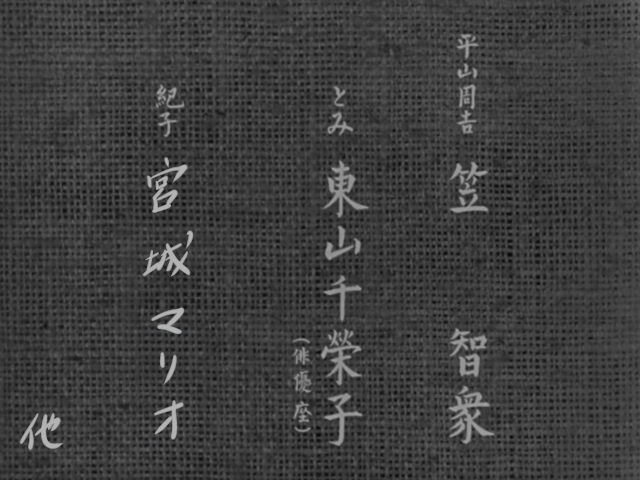 平山周吉 笠 智衆
とみ 東山千榮子
(俳優座)
紀子 宮城マリオ
他